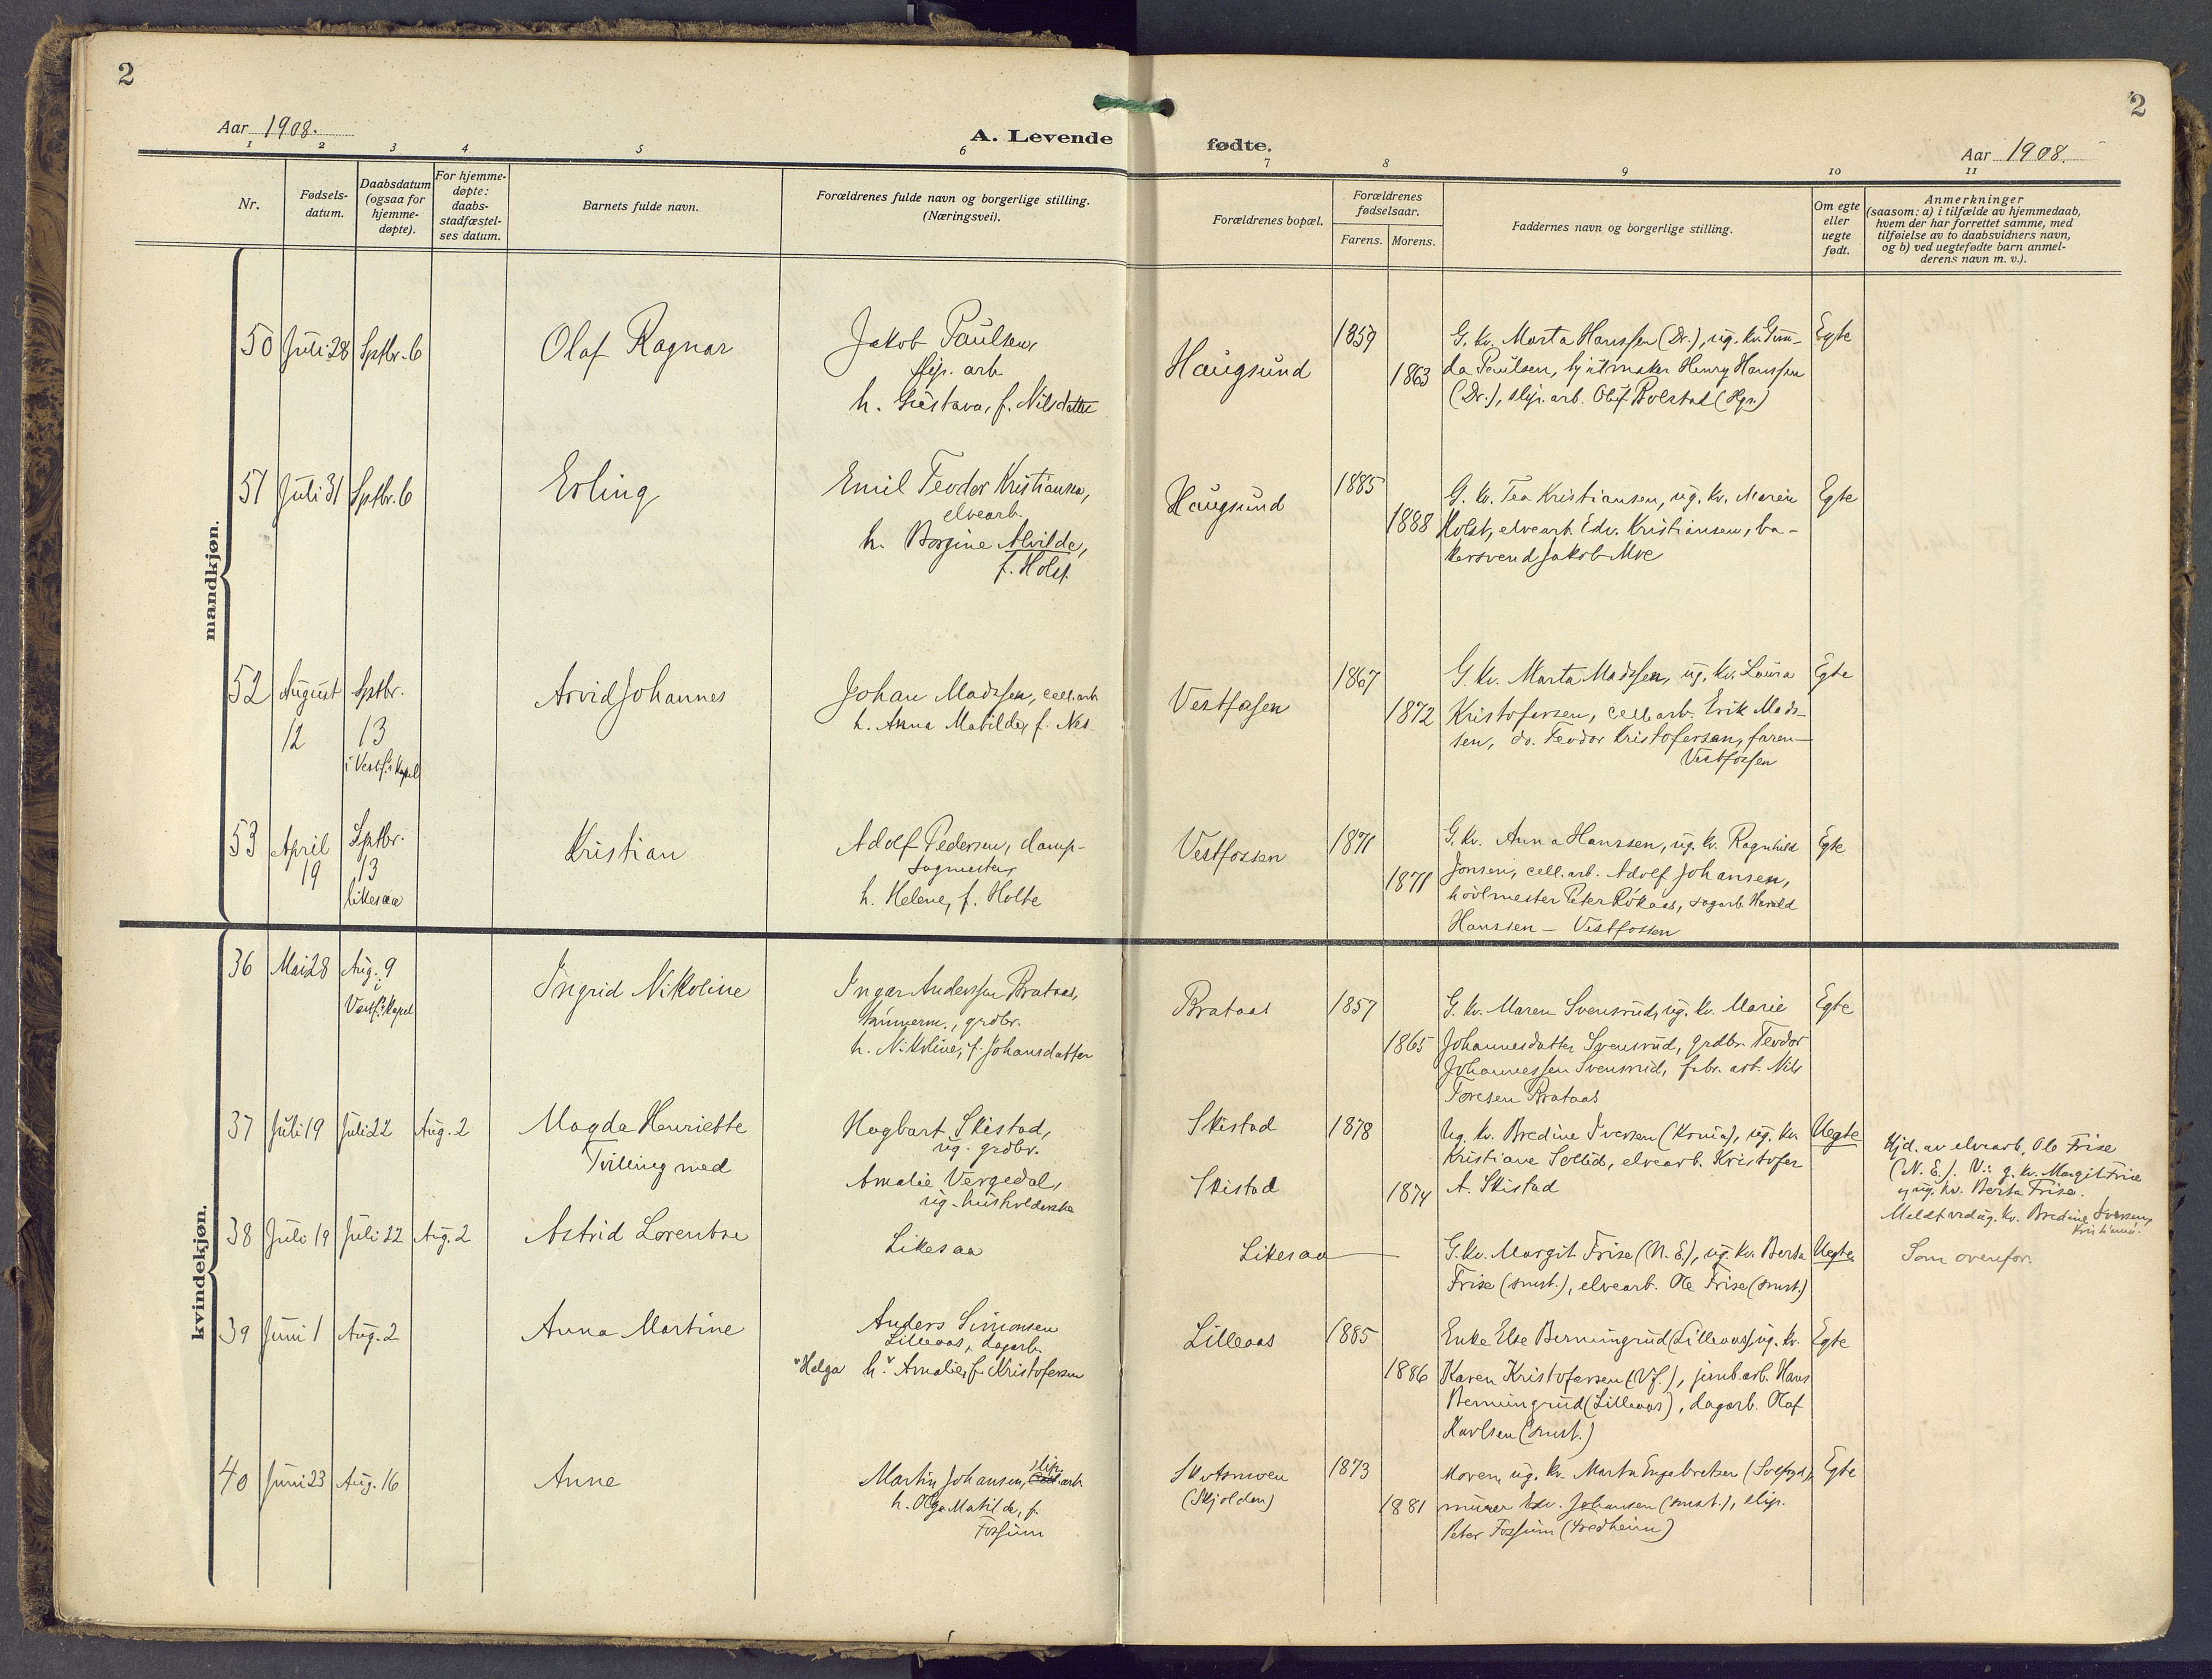 2
2
Aar 1908.
A. Levende fødte.
Aar 1908.
1 2 3 4 5 6 7 8 9 10 11
Nr.
Fødsels-
datum.
Daabsdatum
(ogsaa for
hjemme-
døpte).
For hjemme-
døpte:
daabs-
stadfæstel-
ses datum.
Barnets fulde navn.
Forældrenes fulde navn og borgerlige stilling.
(Næringsvei).
Forældrenes bopæl.
Forældrenes
fødselsaar.
Farens. Morens.
Faddernes navn og borgerlige stilling.
Om egte
eller
uegte
født.
Anmerkninger
(saasom: a) i tilfælde av hjemmedaab,
hvem der har forrettet samme, med
tilføielse av to daabsvidners navn,
og b) ved uegtefødte barn anmel-
derens navn m. v.).
mandkjøn.
50 Juli 28 Sptbr. 6
Olaf Ragnar
Jakob Paulsen,
slip. arb.
h. Gustava, f. Nilsdatter
Haugsund
1859
1863
G. kv. Marta Hanssen (Dr.), ug. kv. Gun-
da Paulsen, hjulmaker Henry Hanssen
(Dr.), slip. arb. Olaf Bolstad (Hgs.)
Egte
51 Juli 31 Sptbr. 6
Erling
Emil Teodor Kristiansen,
elvearb.
h. Borgine Alvilde,
f. Holst
Haugsund
1885
1888
G. kv. Tea Kristiansen, ug. kv. Maren
Holst, elvearb. Edv. Kristiansen, ba-
kersvend Jakob Moe
Egte
52 August
12
Sptbr.
13
i Vestf. kapel
Arvid Johannes
Johan Madssen, cell. arb.
h. Anna Matilde, f. Nes
Vestfossen
1867
1872
G. kv. Marta Madssen, ug. kv. Laura
Kristofersen, cell. arb. Erik Mads-
sen, do. Teodor Kristofersen, faren —
Vestfossen
Egte
53 April
19
Sptbr.
13
likesaa
Kristian
Adolf Pedersen, damp-
sagmester,
h. Helene, f. Holte
Vestfossen
1871
1871
G. kv. Anna Hanssen, ug. kv. Ragnhild
Jonsen, cell. arb. Adolf Johansen,
hövlmester Peter Rökaas, sagarb. Harald
Hanssen — Vestfossen
Egte
kvindekjøn.
36 Mai 28 Aug. 9
i
Vestf. kapel
Ingrid Nikoline
Ingar Anderssen Brataas,
tømmerm., grdbr.
h. Nikoline, f. Johansdatter
Brataas
1857
1865
G. kv. Maren Svensrud, ug. kv. Marie
Johannesdatter Svensrud, grdbr. Teodor
Johannessen Svensrud, fabr. arb. Nils
Toresen Brataas
Egte
37 Juli 19 Juli 22 Aug. 2
Magda Henriette
Tvilling med
Hagbart Skistad,
ug. grdbr.
Amalie Vergedal,
ug. husholderske
Skistad
Skistad
1878
1874
Ug. kv. Bredine Iversen (Krnia), ug. kv.
Kristiane Sollid, elvearb. Kristofer
A. Skistad
Uegte
Hjd. av elvearb. Ole Frise
(N. E.). V.: g. kv. Margit Frise
og ug. kv. Berta Frise.
Meldt ved ug. kv. Bredine Iversen,
Kristiania.
38 Juli 19 Juli 22 Aug. 2
Astrid Lorentse
Likesaa
Likesaa
G. kv. Margit Frise (N. E.), ug. kv. Berta
Frise (smst.), elvearb. Ole Frise (smst.)
Uegte
Som ovenfor.
39 Juni 1 Aug. 2
Anna Martine
Anders Simonsen
Lilleaas, dagarb.
"Helga h." Amalie, f. Kristofersen
Lilleaas
1885
1886
Enke Else Berningrud (Lilleaas), ug. kv.
Karen Kristofersen (Vf.), jernb. arb. Hans
Berningrud (Lilleaas), dagarb. Olaf
Karlsen (smst.)
Egte
40 Juni 23 Aug. 16
Anne
Martin Johansen, slip. arb.
h. Olga Matilde, f.
Fossum
Skotsmoen
(Skjolden)
1873
1881
Moren, ug. kv. Marta Engebretsen
murer Edv. Johansen (smst.), slip.
Peter Fossum (Fredheim)
Egte